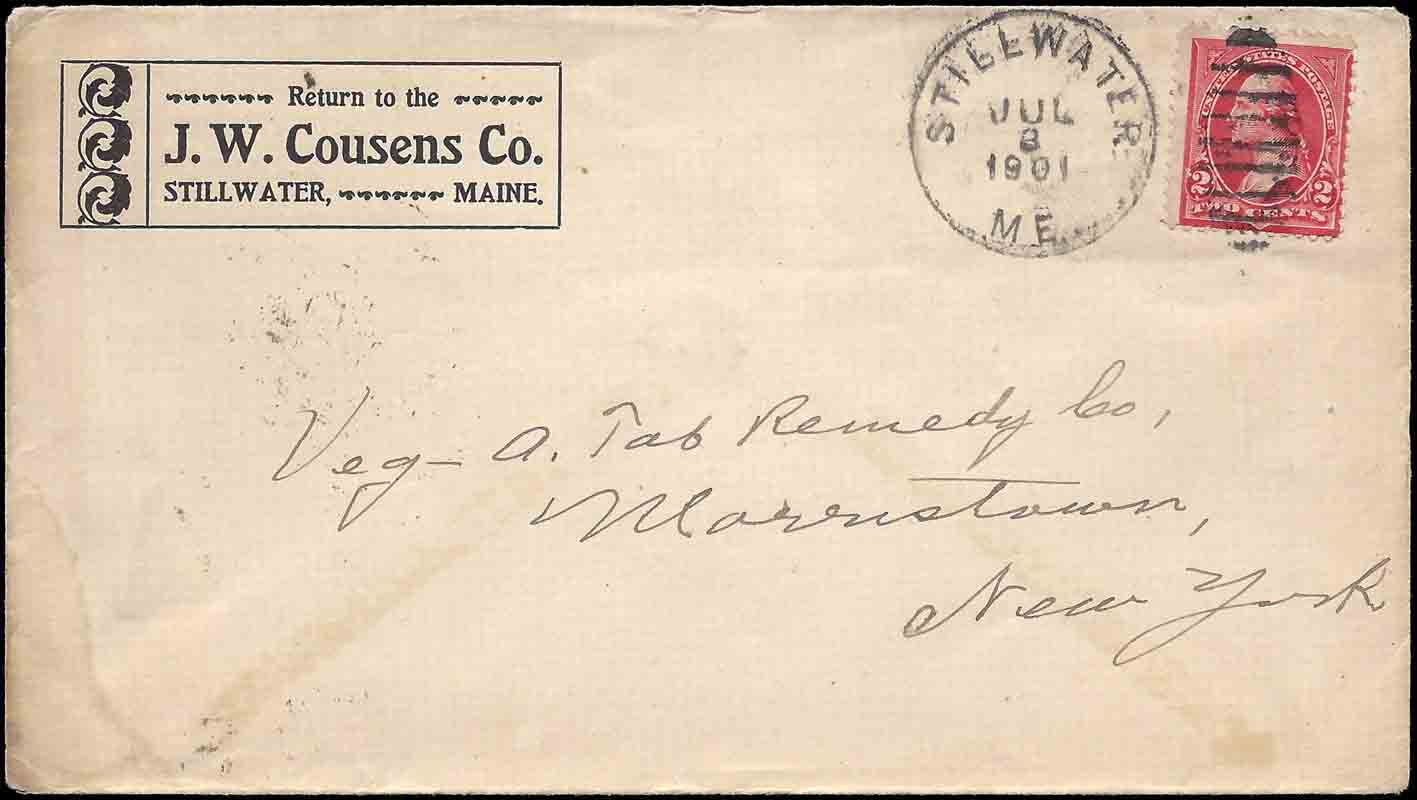 Return to the
J. W. Cousens Co.
STILLWATER, MAINE.
STILLWATER
JUL
8
1901
ME.
UNITED STATES POSTAGE
2 2
TWO CENTS
Veg- A. Tab Remedy Co,
Morristown,
New York